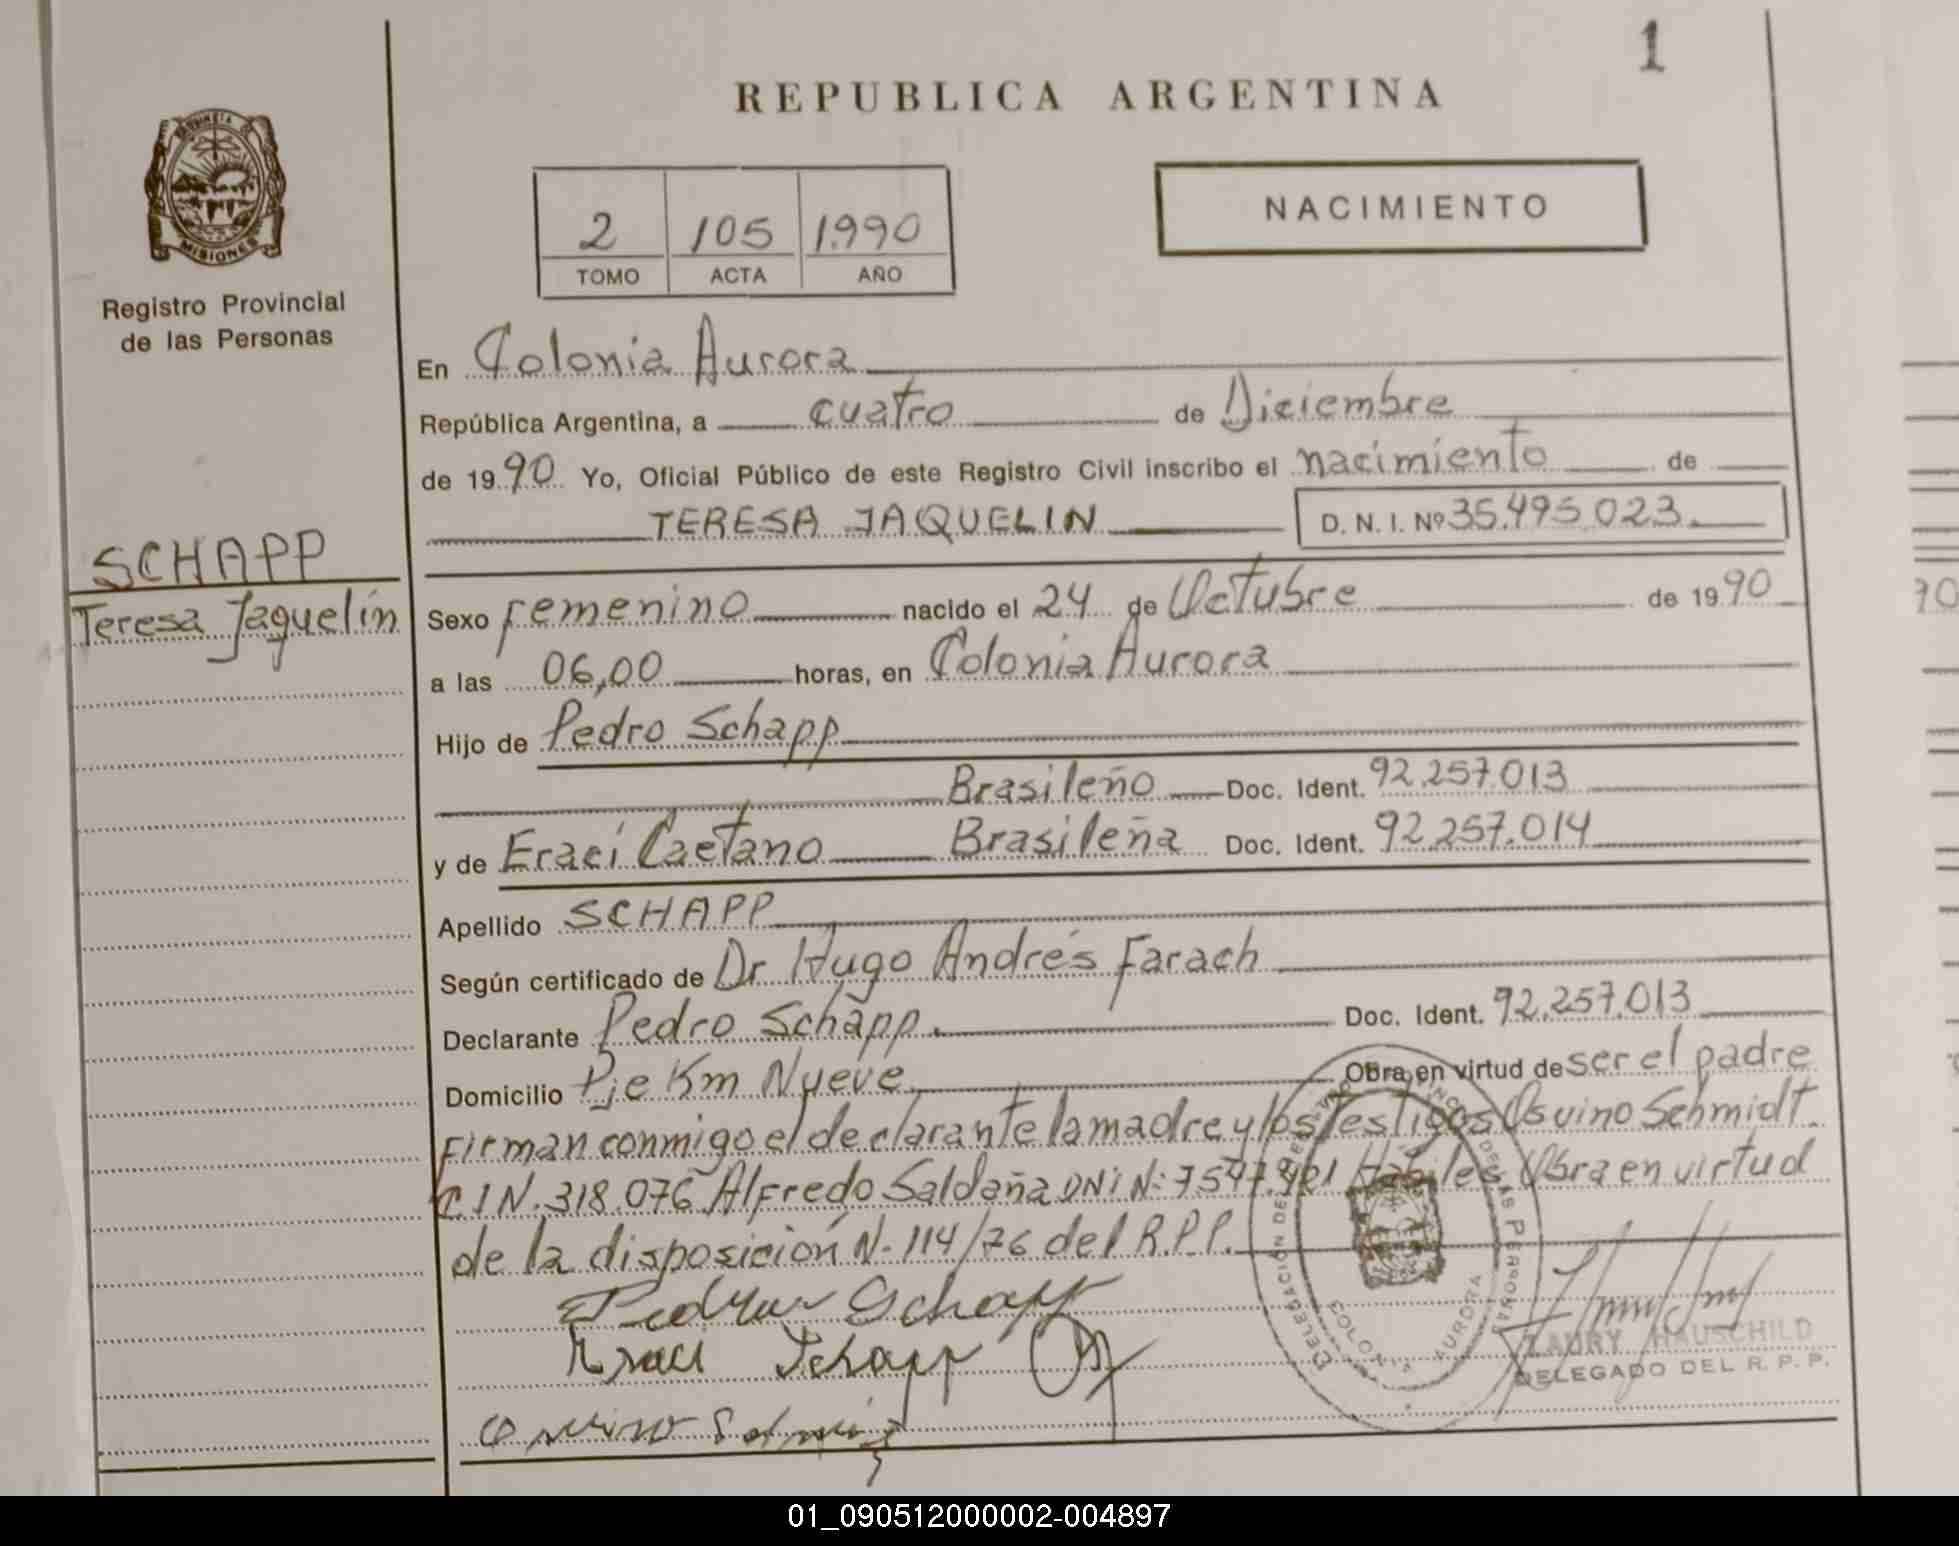 1
REPUBLICA ARGENTINA
PROVINCIA DE
MISIONES
Registro Provincial
de las Personas
2 105 1.990
TOMO ACTA AÑO
NACIMIENTO
En Colonia Aurora
República Argentina, a cuatro de Diciembre
de 1990 Yo, Oficial Público de este Registro Civil inscribo el nacimiento de
TERESA JAQUELIN D. N. I. Nº 35.495.023.
SCHAPP
Teresa Jaquelín
Sexo Femenino nacido el 24 de Octubre de 1990
a las 06,00 horas, en Colonia Aurora
Hijo de Pedro Schapp
Brasileño Doc. Ident. 92.257.013
y de Eraci Caetano Brasileña Doc. Ident. 92.257.014
Apellido SCHAPP
Según certificado de Dr. Hugo Andrés Farach
Declarante Pedro Schapp. Doc. Ident. 92.257.013
Domicilio Pje Km Nueve. Obra en virtud de ser el padre
Firman conmigo el declarante la madre y los testigos Osvino Schmidt.
C.I N. 318.076 Alfredo Saldaña DNI N: 7.547.421 Hábiles Obra en virtud
de la disposición N- 114/76 del R.P.P.
Schapp
Schapp
COLONIA AURORA
LAURY HAUSCHILD
DELEGADO DEL R. P. P.
90
01_090512000002-004897